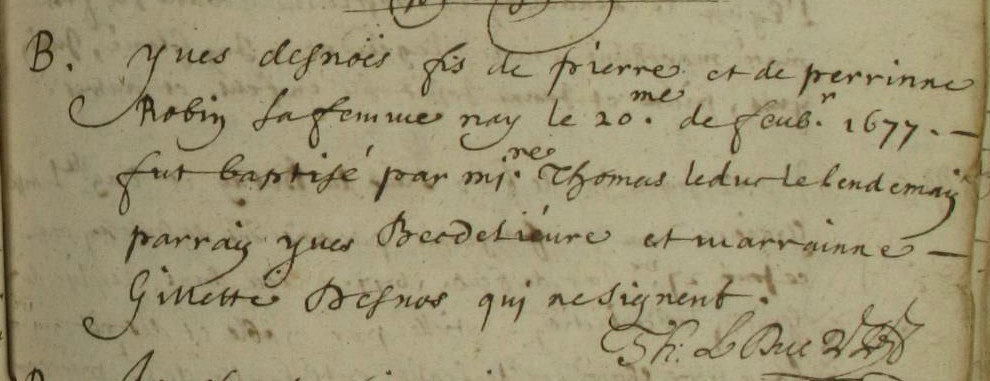 B. yves desnoës fis de pierre et de perrinne
Robin sa femme nay le 20.me de feub.r 1677. —
fut baptisé par mi.re Thomas leduc le lendemain
parrain yves Becdeliévre et marrainne —
Gillette Desnos qui ne signent.
Th: LeDuc